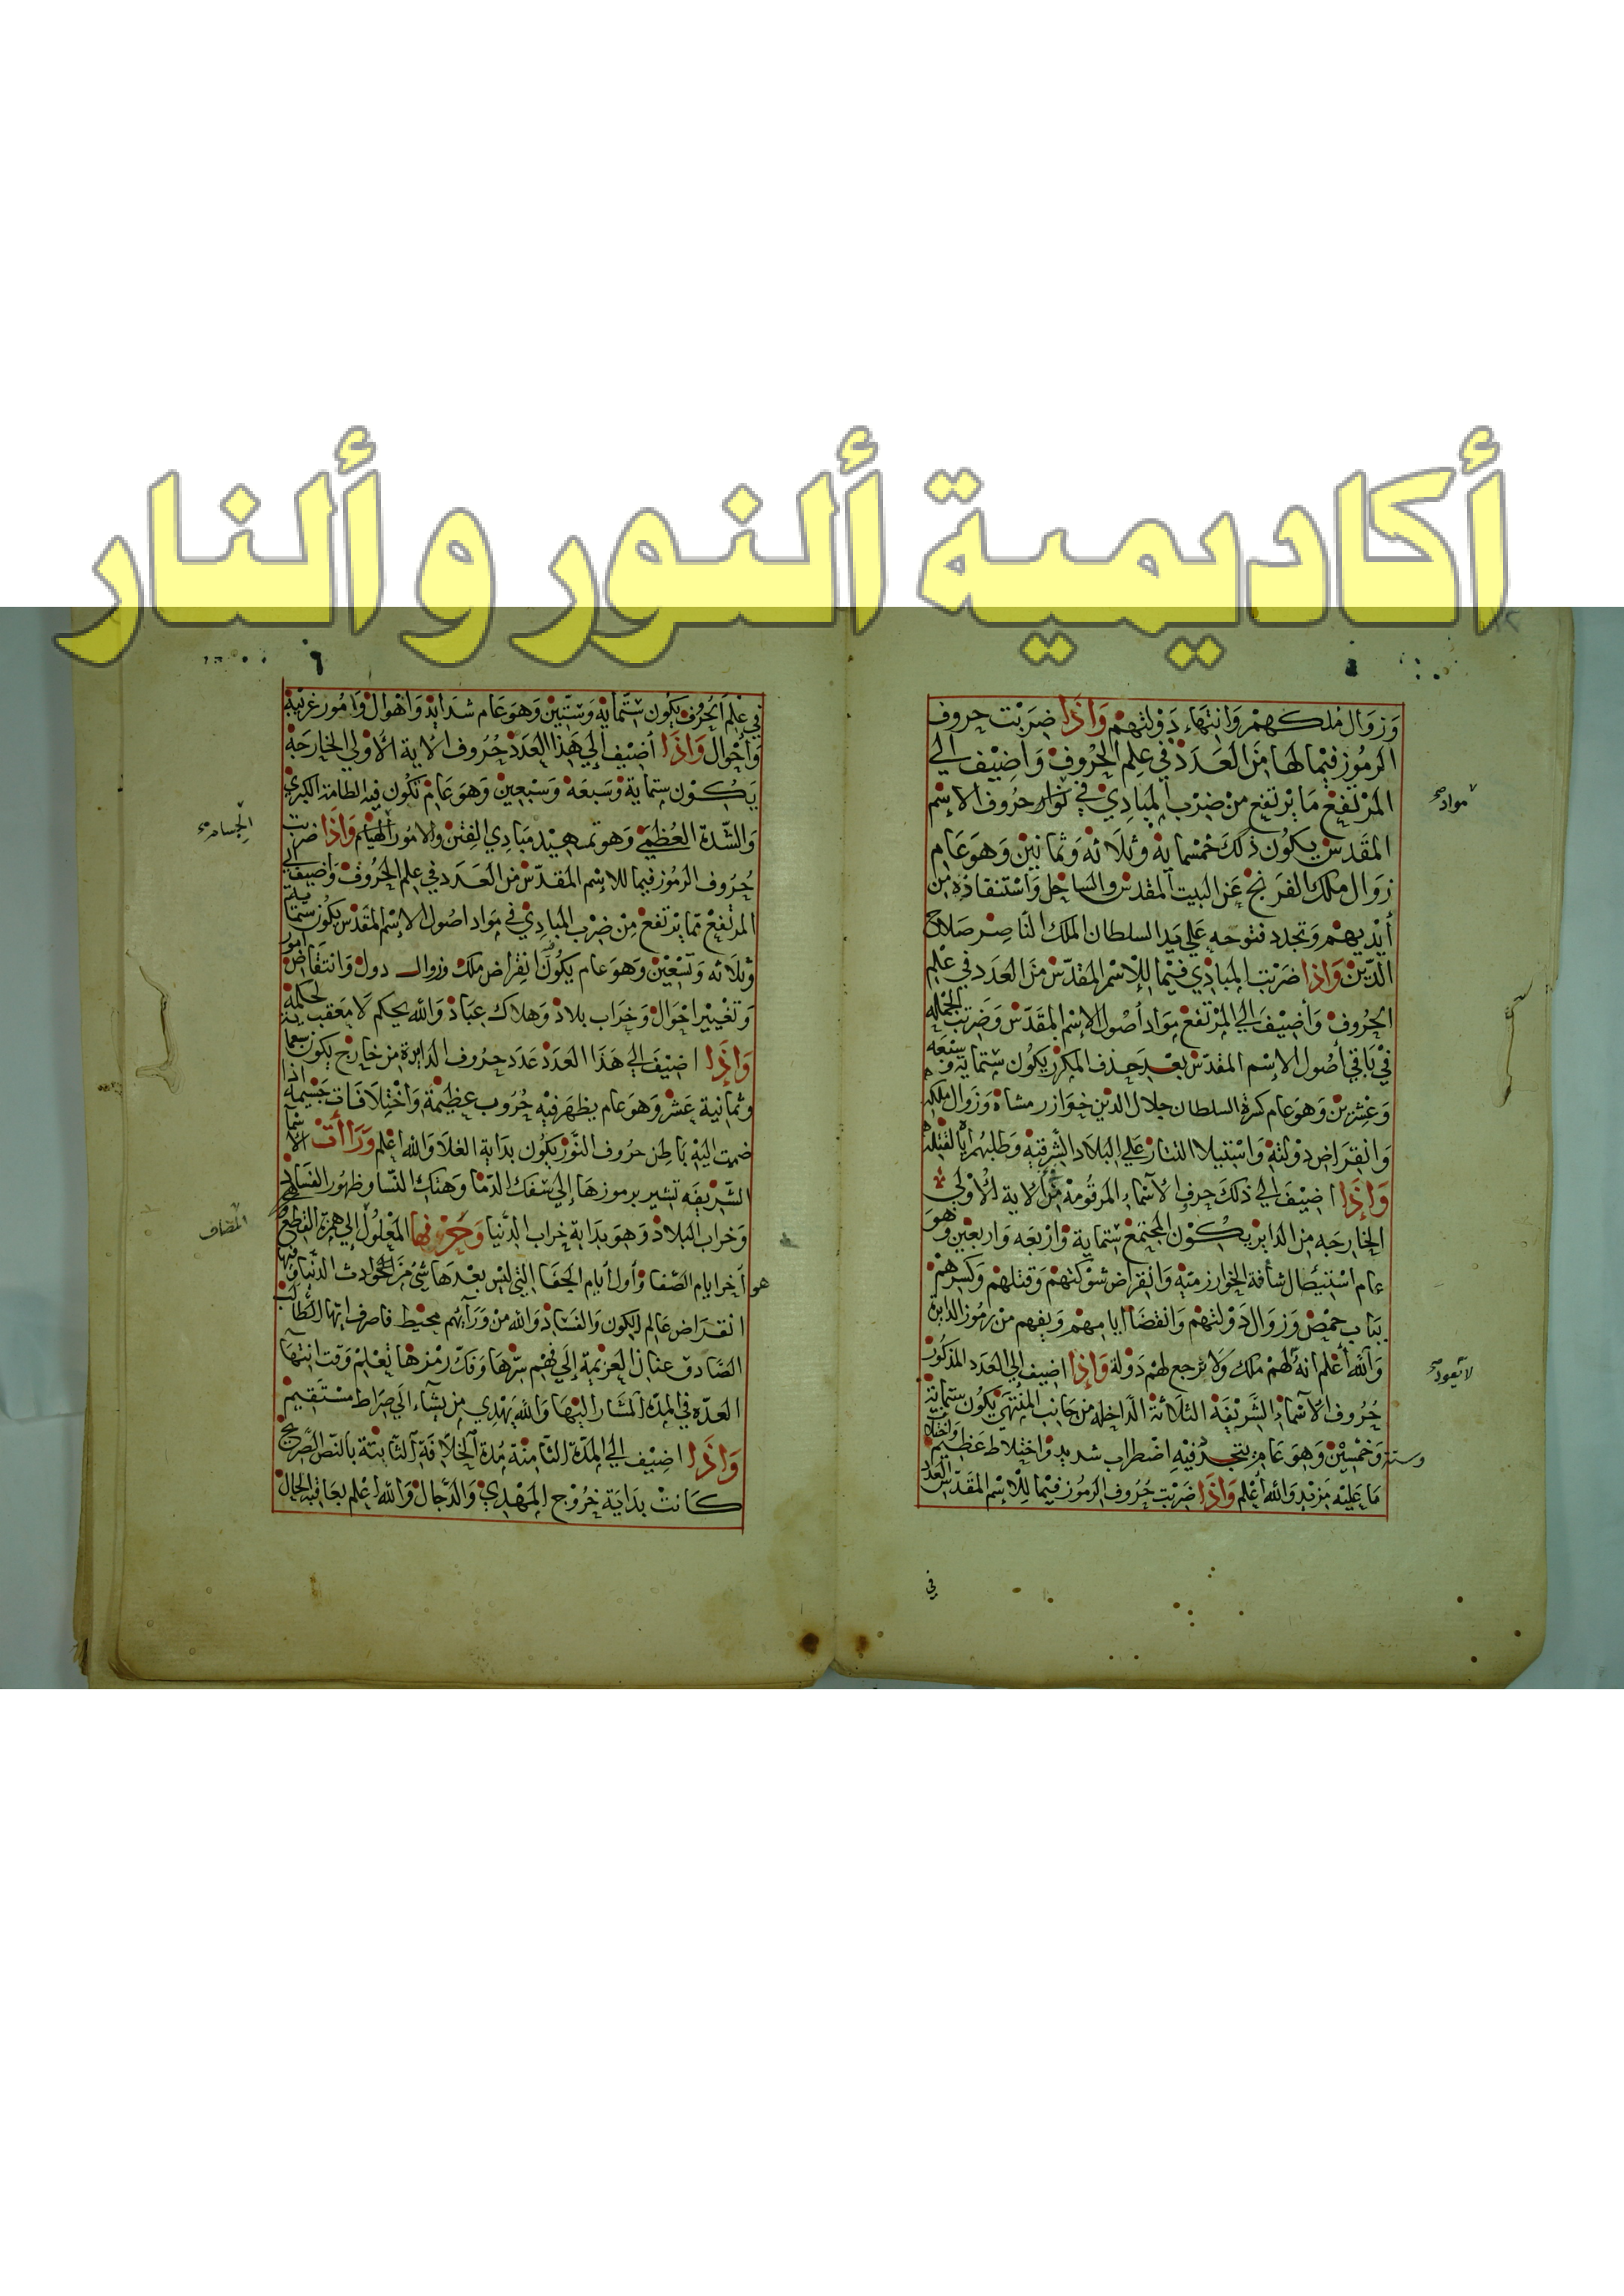 أكاديمية ألنور و ألنار
وَزوَال مُلكهمْ وَانتهَاء دَولتهمْ وَاذَا ضرَبْت حروف
المرْمُوز فيْما لهَا مَن العَدَدْ في علم الحُروفْ وَاضيْف الي
المرْتفعْ مَا يرْتفع منْ ضرْب المبَادِي في حُرُوف الاسْم
المقَدس يكوُن ذَلكَ خمْسماية وثلاثة وَثمانيْن وَهوَ عَام
زوَال ملك الفرَنج عَن البيت المقدسْ والسَاحل وَاسْتنقاذه من
أيْديهمْ وَتجدد فتوحه علي يد السلطان الملك النَاصر صَلاح
الدّين وَاذا ضرَبْت المبَادِي فيْما للاسْم المقدّس منَ العَدَد في علم
الحرُوف وَأضيْف الي المرْتفع مَوَاد أصُول الاسْم المقَدّس وَضرَبْت الجمْلة
في بَاقي أصُول الاسم المقدّس بعْد حذف المكرَر يكوُن ستماية وَسبْعَة
وَعشْرين وَهوَ عَام كسْرة السلطان جلال الدين خوَارزمشاه وَزوَال ملكه
وَانقرَاض دوْلته وَاسْتيلا التتار علي البلاد الشرقية
وَاذَا اضيْف الي ذلكَ حرف الاسْماء المرقُومة منَ الاية الاولي
الخارجه من الدَايرْ يكوُن المجتمعْ ستماية وَارْبَعه وَاربعين وَهوَ
عام اسْتيصَال شأفة الخوارزميَة وَانقرَاض شوْكتهمْ وَقتلهمْ وَكسرهمْ
ببَاب حمْص وَزوَال دَوْلتهمْ وَانقضَا ايامهمْ وَيفهم منْ رمُوز الدايرة
وَالله أعْلم انه لهمْ ملك وَلا يرْجع لهمْ دَولة وَاذا اضيف الي العَدد المذكُور
حُرُوف الاسْماء الشريْفَة الثلاثة الدّاخله من جَانب المنْتهي يكوُن ستماية
وستة وَخمْسيْن وَهوَ عَام يتجدد فيْه اضْطراب شديد وَاختلاط عَظيْم
مَا عَليْه مَزيْد وَالله أعْلم وَاذَا ضَربْت حُرُوف الرمُوز فيْما للاسْم المقَدّس العَدد
في
مواد صح
لا يعود صح
في علم الحُرُوف يكوُن ستماية وَستّين وَهوَ عَام شدَايد وَاهْوَال وَامُور غريْبة
وَأحْوال وَاذَا أضيْف الي هَذا العَددْ حُرُوف الاية الاولي الخارجَة
يَكوُن ستماية وَسَبعَة وَسَبْعيْن وَهوَ عَام تكوُن فيه الطامة الكبري
وَالشّدة العُظمي وَهوَ تمهيْد مَبادي الفتن وَالامُور وَاذَا ضربت
حُرُوف الرمُوز فيما للاسْم المقدّس من العَدَد في علم الحُرُوف وَأضيف الي
المرْتفعْ ممَا يرْتفعْ منْ ضرْب المبادي في مَواد اصُول الاسْم المقَدس يكوُن ستماية
وثلاثه وَتسْعيْن وَهوَ عام يكوُن انقرَاض ملك وَزوال دول وَانتقاض أمور
وَتغْيير احْوَال وَخرَاب بلاد وَهلاك عبَاد وَالله يحكم لا مَعقب لحكمه
وَاذَا اضيْف الي هَذَا العَدَدْ عَدَد حرُوف الدَايرة من خارج يكوُن
وثمانية عَشر وَهوَ عام يظهَر فيْه حُرُوب عظيْمة وَاخْتلافات جَسيْمة اذا
ضمت اليْه بَاطن حروف النوْر يكوُن بدَاية الغلا وَالله اعْلم
الشّريفَه تشير برموزهَا إلي سَفك الدمَا وَهتك النسَا وظهوُر الفسَاد
وَخراب البلاد وَهوَ بدَاية خراب الدّنيا
هو آخر ايام الصّفا وَأول أيام الجَفا التي ليْس بعْدهَا شيْ منَ الحَوادث الدّنيا
انقرَاض عَالم الكون وَالفسَاد وَالله منْ وَرَايهمْ محيط فاصرف ايها الطالب
الصَادق عنان العَزيْمة إلي فهْم سرّها وَفكّ رمْزها تعْلم وَقت انتهَا
العدّة في المدّة المشار اليْهَا وَالله يَهْدي من يشَاء الي صِرَاط مسْتقيْم
وَاذَا اضيْف الي المدّة الثامنة مُدة الخلافَة الثابتة بالنّص الصَريح
كَانتْ بدَايَة خرُوْج المَهْدِي وَالدّجال وَالله اعْلم بعَاقبة الحَال
المضاف